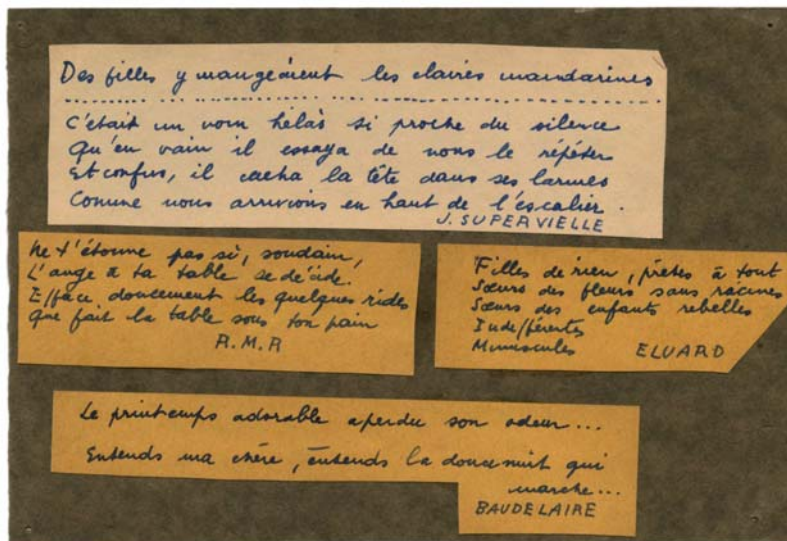 Des filles y mangeaient les claires mandarines
C'était un nom hélas si proche du silence
Qu'en vain il essaya de nous le répéter
Et confus, il cacha la tête dans ses larmes
Comme nous arrivions en haut de l'escalier.
J. SUPERVIELLE
Ne t'étonne pas si, soudain,
L'ange à ta table se décide.
Efface doucement les quelques rides
que fait la table sous ton pain
R.M.R
Filles de rien, prêtes à tout
Sœurs des fleurs sans racines
Sœurs des enfants rebelles
Indifférentes
Minuscules
ELUARD
Le printemps adorable a perdu son odeur...
Entends ma chère, entends la douce nuit qui
marche...
BAUDELAIRE